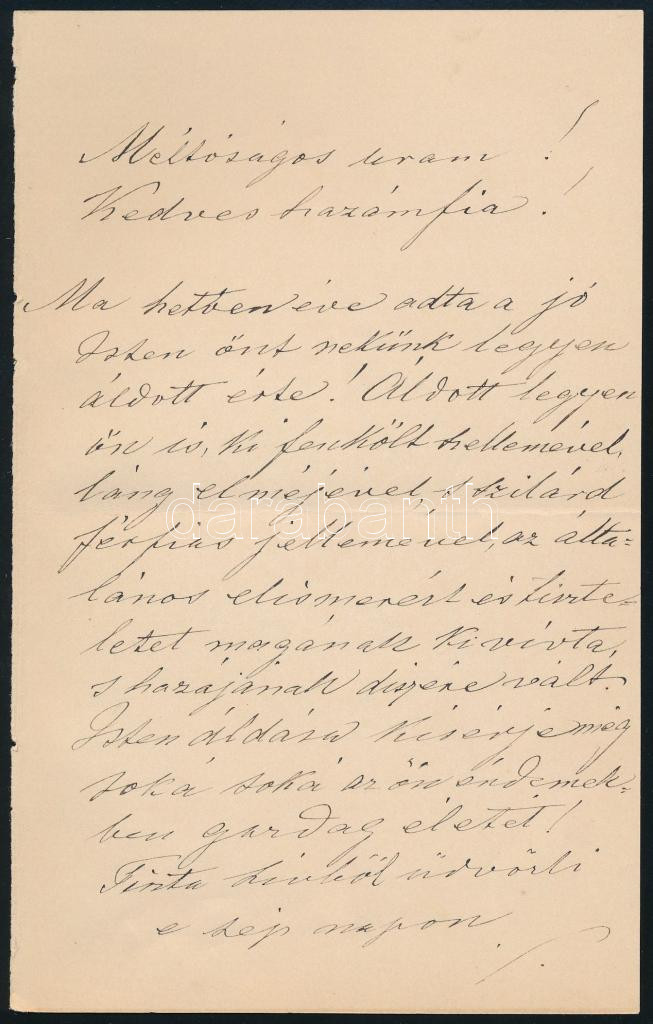 Méltóságos uram!
Kedves hazámfia!
Ma hetven éve adta a jó
Isten önt nekünk legyen
áldott érte! Áldott legyen
ön is, ki fenkölt szellemével,
láng elméjével, s szilárd
férfias jellemével, az álta=
lános elismerést és tiszte=
letet magának kivívta,
s hazájának diszére vált.
Isten áldása kisérje még
soká soká az ön érdemek=
ben gazdag életét!
Tiszta szivből üdvözli
e szép napon
darabanth